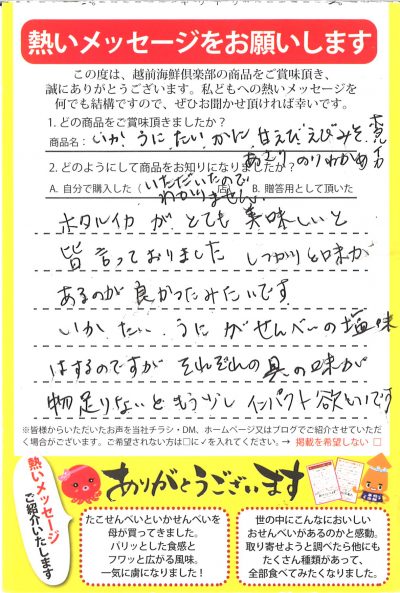 熱いメッセージをお願いします
この度は、越前海鮮倶楽部の商品をご賞味頂き、
誠にありがとうございます。私どもへの熱いメッセージを
何でも結構ですので、ぜひお聞かせ頂ければ幸いです。
1. どの商品をご賞味頂きましたか?
商品名: いか、うに、たい、かに、甘えび、えびみそ、
あさり、のりわかめ
2. どのようにして商品をお知りになりましたか?
A. 自分で購入した( 店) B. 贈答用として頂いた
いただいたので
わかりません。
ホタルイカ が、とても 美味しいと
皆 言っておりました しっかりと味が
あるのが 良かったみたいです
いか、たい、うに がせんべいの塩味
はするのですが それぞれの具の味が
物足りないと もう少し インパクト欲しいです
※皆様からいただいたお声を当社チラシ・DM、ホームページ又はブログでご紹介させていただ
く場合がございます。ご希望されない方は□に✓を入れてください。→ 掲載を希望しない □
熱いメッセージ
ご紹介いたします
ありがとうございます
たこせんべいといかせんべいを
母が買ってきました。
パリッとした食感と
フワッと広がる風味。
一気に虜になりました!
世の中にこんなにおいしい
おせんべいがあるのかと感動。
取り寄せようと調べたら他にも
たくさん種類があって、
全部食べてみたくなりました。